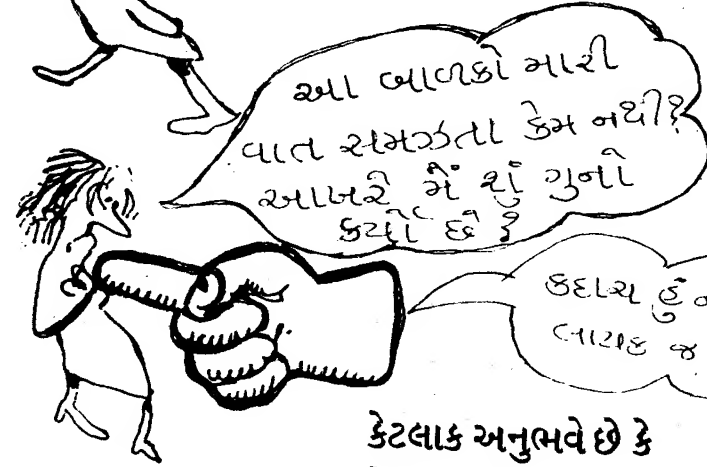 આ બાળકો મારી
વાત સમઝતા કેમ નથી?
આખરે મેં શું ગુનો
કર્યો છે ?
કદાચ હું
લાયક જ
કેટલાક અનુભવે છે કે